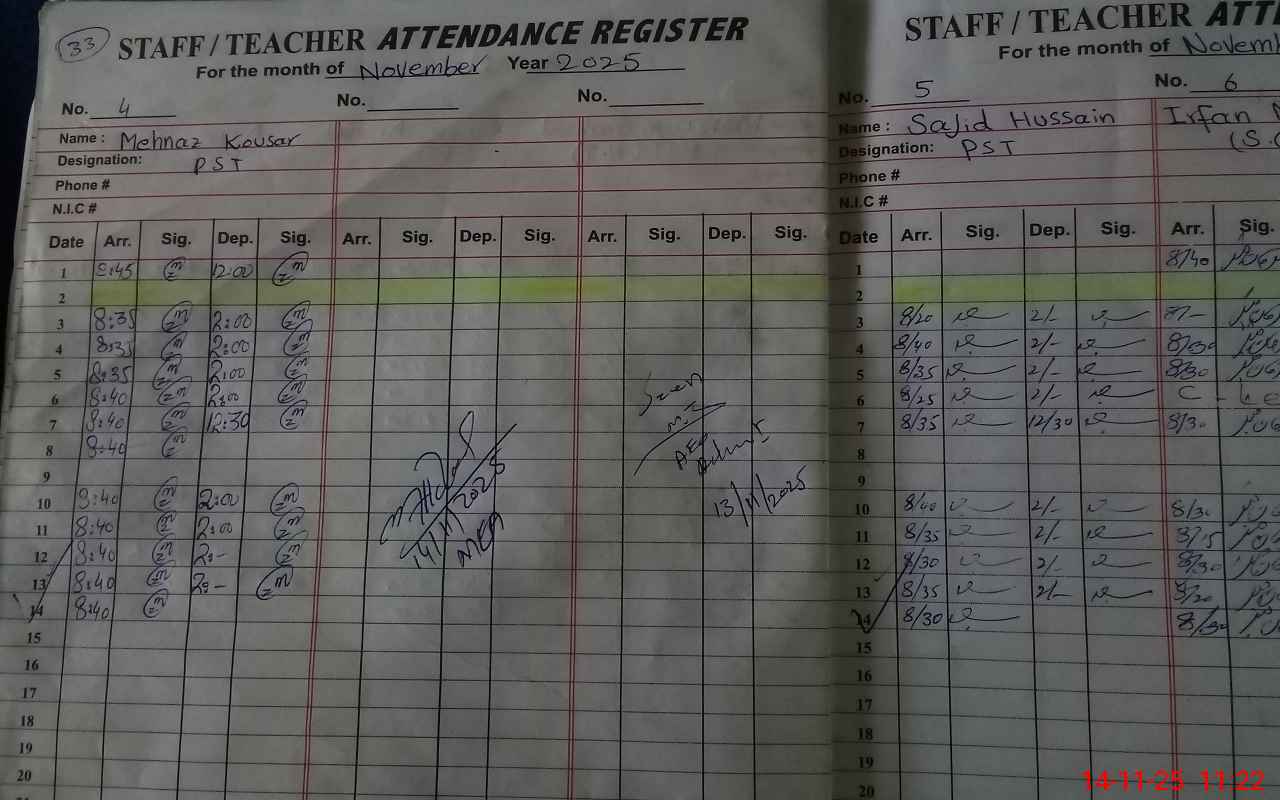 33
STAFF / TEACHER ATTENDANCE REGISTER
For the month of November Year 2025
No. 4 No. No.
Name : Mehnaz Kousar
Designation: PST
Phone #
N.I.C #
Date Arr. Sig. Dep. Sig. Arr. Sig. Dep. Sig. Arr. Sig. Dep. Sig.
1 8:45 12:00
2
3 8:35 2:00
4 8:35 2:00
5 8:35 2:00
6 8:40 2:00
7 8:40 12:30
8 8:40
9
10 8:40 2:00
11 8:40 2:00
12 8:40 2:-
13 8:40 2:-
14 8:40
15
16
17
18
19
20
14/11/2025
MEA
Seen
AEO
13/11/2025
STAFF / TEACHER ATTE
For the month of Novemb
No. 5 No. 6
Name : Sajid Hussain Irfan
Designation: PST (S.
Phone #
N.I.C #
Date Arr. Sig. Dep. Sig. Arr. Sig.
1 8/40
2
3 8/20 2/- 8/-
4 8/40 2/- 8/30
5 8/35 2/- 8/30
6 8/25 2/- C - L e
7 8/35 12/30 8/30
8
9
10 8/40 2/- 8/30
11 8/35 2/- 8/15
12 8/30 2/- 8/30
13 8/35 2/- 8/20
14 8/30 8/30
15
16
17
18
19
20
14-11-25 11:22